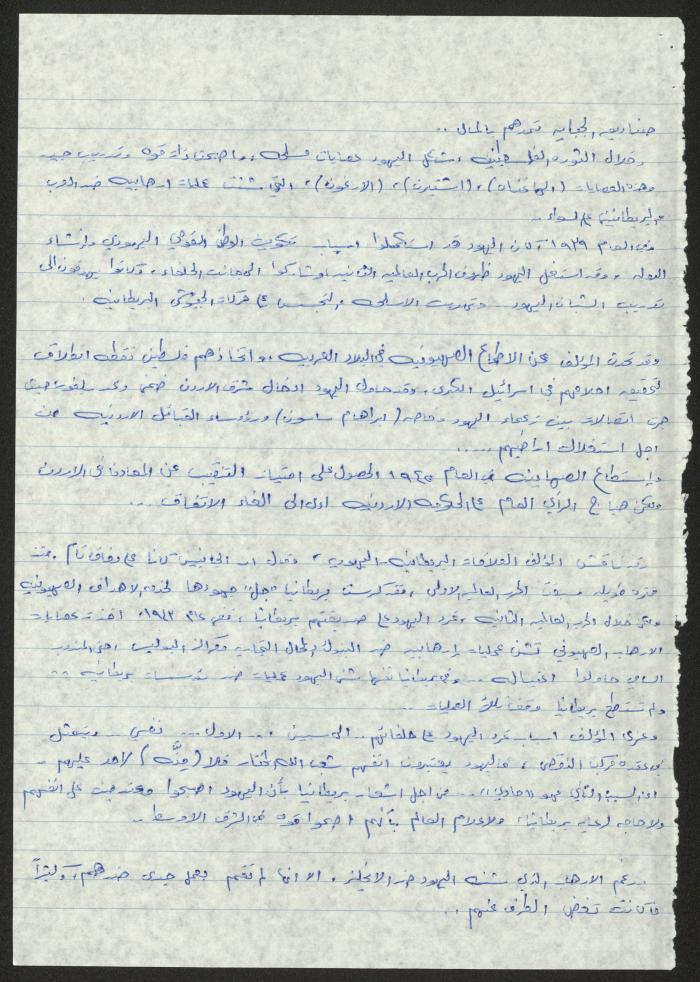 صناديق الجباية تمدهم بالمال ..
وخلال الثورة الفلسطينية، شكل اليهود عصابات مسلحة، واصبحت ذات قوة وتدريب جيد
وهذه العصابات (الهاغناه)، (اشتيرن)، (الارغون)، التي شنت عمليات ارهابية ضد العرب
والبريطانيين على سواء ..
وفي العام ١٩٣٩ كان اليهود قد استكملوا اسباب تكوين الوطن القومي اليهودي وإنشاء
الدولة، وقد استغل اليهود ظروف الحرب العالمية الثانية، وشاركوا الى جانب الحلفاء، وكانوا يهدفون الى
تدريب الشبان اليهود .. وتهريب الاسلحة، والتجسس على حركات الجيوش البريطانية.
وقد تحدث المؤلف عن الاطماع الصهيونية في البلاد العربية، واتخاذهم فلسطين نقطة انطلاق
لتحقيق احلامهم في اسرائيل الكبرى، وقد حاول اليهود ادخال شرق الاردن ضمن وعد بلفور، حيث
جرت اتصالات بين زعماء اليهود وخاصة (ابراهام ساسون) ورؤوساء القبائل الاردنية من
اجل استغلال اراضيهم .....
واستطاع الصهاينة في العام ١٩٤٥ الحصول على امتياز التنقيب عن المعادن في الاردن
ولكن هياج الرأي العام على الحكومة الاردنية ادى الى الغاء الاتفاق ...
وقد ناقش المؤلف العلاقات البريطانية - اليهودية، وقال ان الجانبين كانا على وفاق تام منذ
فترة طويلة سبقت الحرب العالمية الاولى، فقد كرست بريطانيا "جل" جهودها لخدمة الاهداف الصهيونية
وفي خلال الحرب العالمية الثانية، تمرد اليهود على صديقتهم بريطانيا، ففي عام ١٩٤٣، اخذت عصابات
الارهاب الصهيوني تشن عمليات إرهابية ضد البنوك والمحال التجارية ومراكز البوليس، حتى المندوب
السامي حاولوا اغتياله .. وفي بريطانيا نفسها شن اليهود عمليات ضد مؤسسات بريطانية ..
ولم تستطع بريطانيا وقف تلك العمليات ..
وعزى المؤلف اسباب تمرد اليهود على حلفائهم .. الى سببين ... الاول .... نفسي .. ويتمثل
في عقدة مركب النقص، فاليهود يعتبرون انفسهم شعب الله المختار فلا (مِنَّه) لاحد عليهم ..
اما السبب الثاني فهو "مادي" .. من اجل اشعار بريطانيا بأن اليهود اصبحوا معتمدين على انفسهم
ولا حاجة لرعاية بريطانيا، ولاعلام العالم بأنهم اصبحوا قوة في الشرق الاوسط ..
ورغم الارهاب الذي شنه اليهود ضد الانجليز، الا انها لم تقم بعمل جدي ضدهم، وكثيراً
ما كانت تغض الطرف عنهم ..